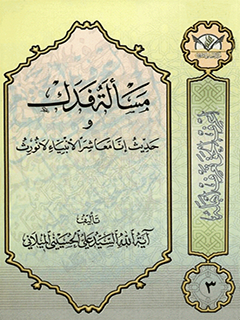 مسألة فدك
و
حديث إنا معاشر الأنبياء لا نورث
تأليف
آية الله السيد علي الحسيني الميلاني
٣